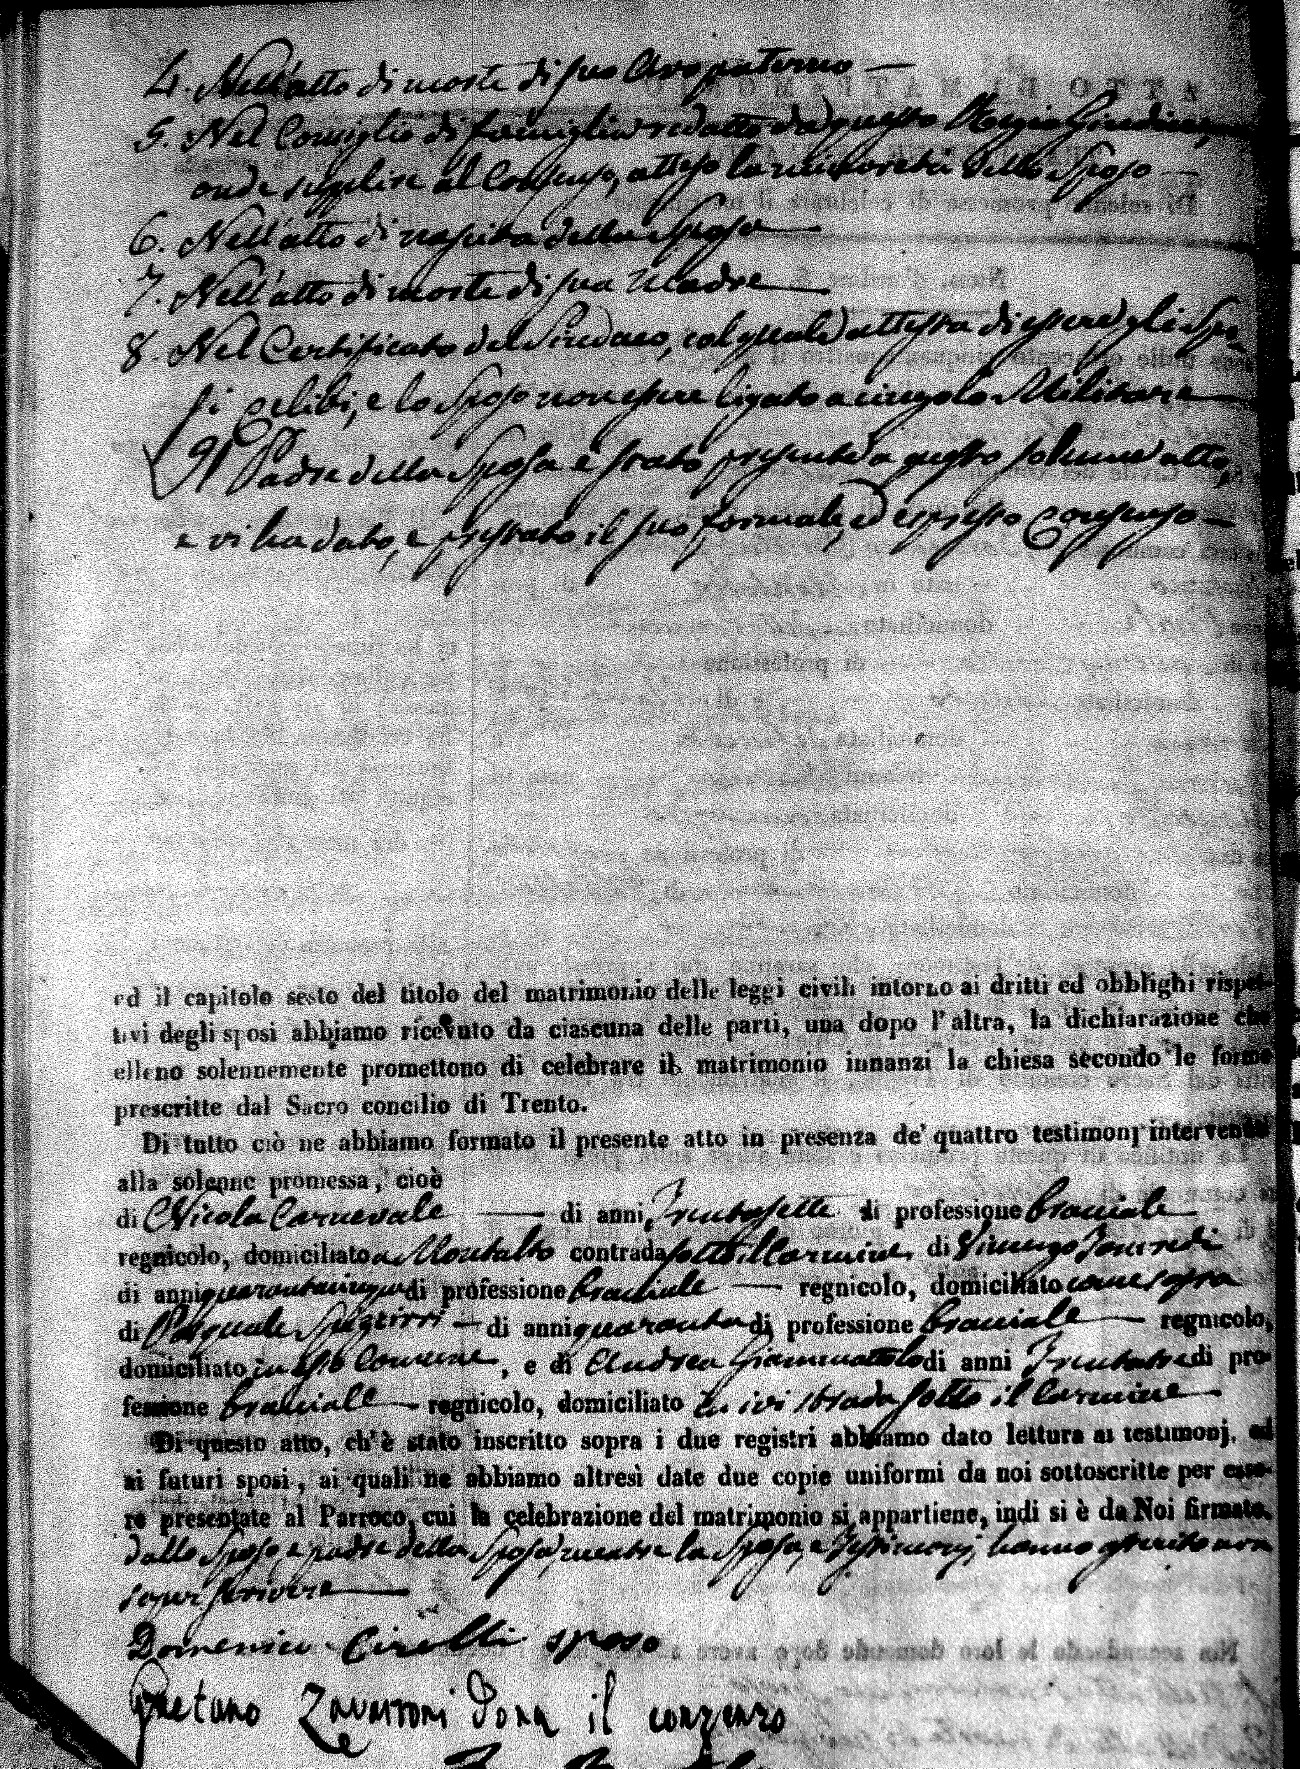 4. Nell'atto di morte di suo Avo paterno —
5. Nel Consiglio di famiglia redatto da questo Regio Giudice,
onde supplire al Consenso, atteso la minoretà dello Sposo —
6. Nell'atto di nascita della Sposa —
7. Nell'atto di morte di sua Madre —
8. Nel Certificato del Sindaco, col quale attesta di essere gli Spo-
si Celibi, e lo Sposo non essere ligato a cingolo Militare —
Il Padre della Sposa è stato presente a questo solenne atto,
e vi ha dato, e prestato il suo formale, ed espresso Consenso —
ed il capitolo sesto del titolo del matrimonio delle leggi civili intorno ai dritti ed obblighi rispet-
tivi degli sposi abbiamo ricevuto da ciascuna delle parti, una dopo l'altra, la dichiarazione che
elleno solennemente promettono di celebrare il matrimonio innanzi la chiesa secondo le forme
prescritte dal Sacro concilio di Trento.
Di tutto ciò ne abbiamo formato il presente atto in presenza de' quattro testimonj intervenuti
alla solenne promessa, cioè
di Nicola Carnevale — di anni Trentasette di professione bracciale —
regnicolo, domiciliato a Montalto contrada sotto il Carmine, di Vincenzo
di anni quarantacinque di professione bracciale — regnicolo, domiciliato come sopra
di Pasquale — di anni quaranta di professione bracciale — regnicolo,
domiciliato in esso Comune, e di Andrea Giammattolo di anni Trentatre di pro-
fessione bracciale — regnicolo, domiciliato ivi strada sotto il Carmine —
Di questo atto, ch'è stato inscritto sopra i due registri abbiamo dato lettura ai testimonj, ed
ai futuri sposi, ai quali ne abbiamo altresì date due copie uniformi da noi sottoscritte per esse-
re presentate al Parroco, cui la celebrazione del matrimonio si appartiene, indi si è da Noi firmato,
dallo Sposo e padre della Sposa, mentre la Sposa, e Testimonj hanno asserito non
saper scrivere —
Domenico Cirelli sposo
Gaetano Zavarroni Dona il conzenzo